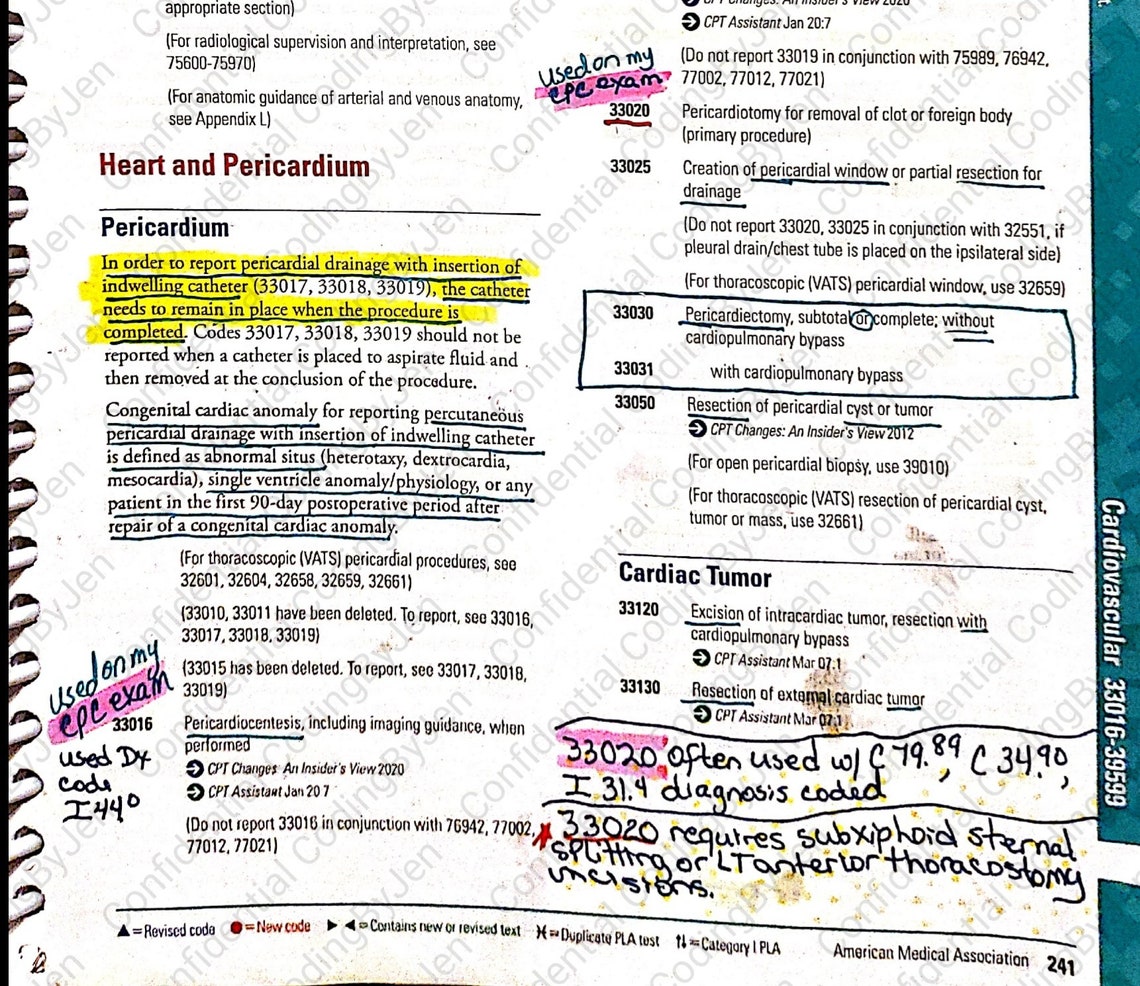 appropriate section)
(For radiological supervision and interpretation, see
75600-75970)
(For anatomic guidance of arterial and venous anatomy,
see Appendix L)
Heart and Pericardium
Pericardium
In order to report pericardial drainage with insertion of
indwelling catheter (33017, 33018, 33019), the catheter
needs to remain in place when the procedure is
completed. Codes 33017, 33018, 33019 should not be
reported when a catheter is placed to aspirate fluid and
then removed at the conclusion of the procedure.
Congenital cardiac anomaly for reporting percutaneous
pericardial drainage with insertion of indwelling catheter
is defined as abnormal situs (heterotaxy, dextrocardia,
mesocardia), single ventricle anomaly/physiology, or any
patient in the first 90-day postoperative period after
repair of a congenital cardiac anomaly.
(For thoracoscopic (VATS) pericardial procedures, see
32601, 32604, 32658, 32659, 32661)
(33010, 33011 have been deleted. To report, see 33016,
33017, 33018, 33019)
(33015 has been deleted. To report, see 33017, 33018,
33019)
used on my
CPC exam
33016 Pericardiocentesis, including imaging guidance, when
performed
used Dx
code
I440
CPT Changes An Insider's View 2020
CPT Assistant Jan 20 7
(Do not report 33016 in conjunction with 76942, 77002,
77012, 77021)
CPT Changes: An Insider's View 2020
CPT Assistant Jan 20:7
(Do not report 33019 in conjunction with 75989, 76942,
77002, 77012, 77021)
used on my
CPC exam
33020 Pericardiotomy for removal of clot or foreign body
(primary procedure)
33025 Creation of pericardial window or partial resection for
drainage
(Do not report 33020, 33025 in conjunction with 32551, if
pleural drain/chest tube is placed on the ipsilateral side)
(For thoracoscopic (VATS) pericardial window, use 32659)
33030 Pericardiectomy, subtotal or complete; without
cardiopulmonary bypass
33031 with cardiopulmonary bypass
33050 Resection of pericardial cyst or tumor
CPT Changes: An Insider's View 2012
(For open pericardial biopsy, use 39010)
(For thoracoscopic (VATS) resection of pericardial cyst,
tumor or mass, use 32661)
Cardiac Tumor
33120 Excision of intracardiac tumor, resection with
cardiopulmonary bypass
CPT Assistant Mar 07:1
33130 Resection of external cardiac tumor
CPT Assistant Mar 07:1
33020 often used w/ C 79.89, C 34.90,
I 31.4 diagnosis coded
33020 requires subxiphoid sternal
splitting or LT anterior thoracostomy
incisions.
▲=Revised code ●=New code ▶ ◀=Contains new or revised text ⋊=Duplicate PLA test ↑↓=Category I PLA American Medical Association 241
Cardiovascular 33016-39599
Confidential CodingByJen